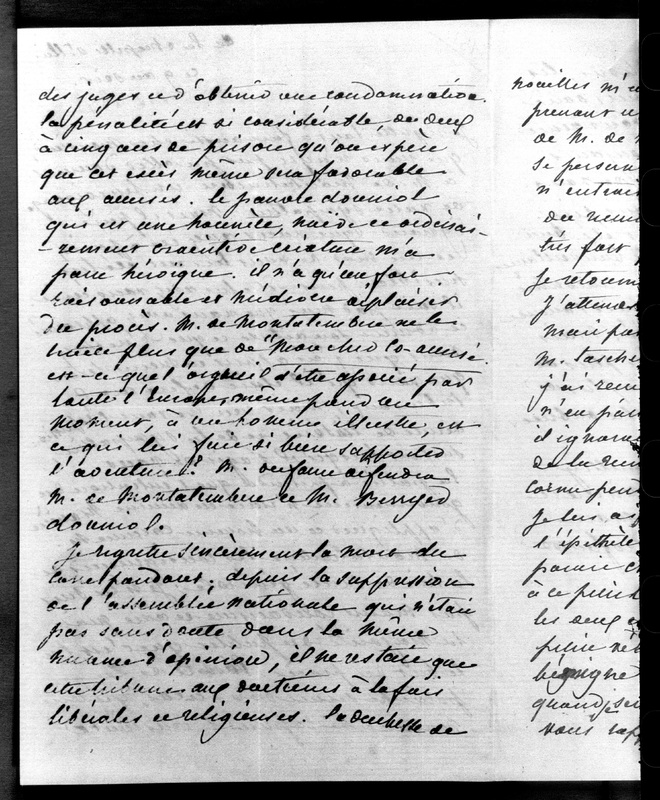 des juges et d'obtenir une condamnation.
la pénalité est si considérable de deux
à cinq ans de prison qu'on espère
que cet excès même sera favorable
aux accusés. le pauvre douniol
qui est une honnête, et ordinai-
-rement craintive créature m'a
paru héroïque. il n'a qu'une fort
raisonnable et médiocre déplaisir
du procès. M. de Montalembert ne le
traite plus que de "Mon cher co-accusé.
est-ce que l'orgueil d'être associé par
toute l'Europe, même pend un
moment, à un homme illustre, est
ce qui lui fait si bien supporter
l'aventure? M. dufaure défendra
M. de Montalembert et M. Berryer
douniol.
je regrette sincèrement la mort du
Correspondant; depuis la suppression
de l'assemblée nationale qui n'était
pas sans doute dans la même
nuance d'opinion, il ne restait que
cette tribune aux doctrines à la fois
libérales et religieuses. la duchesse de
noailles m'a
prenant
de M. de
se person
n'entrai
très fort
je retourn
j'attends
mari pa
M. Tasche
j'ai rem
n'en pa
il ignor
de la
je lui ai
l'épithète
à ce point
les deux
béguigne
quand je
vous rap